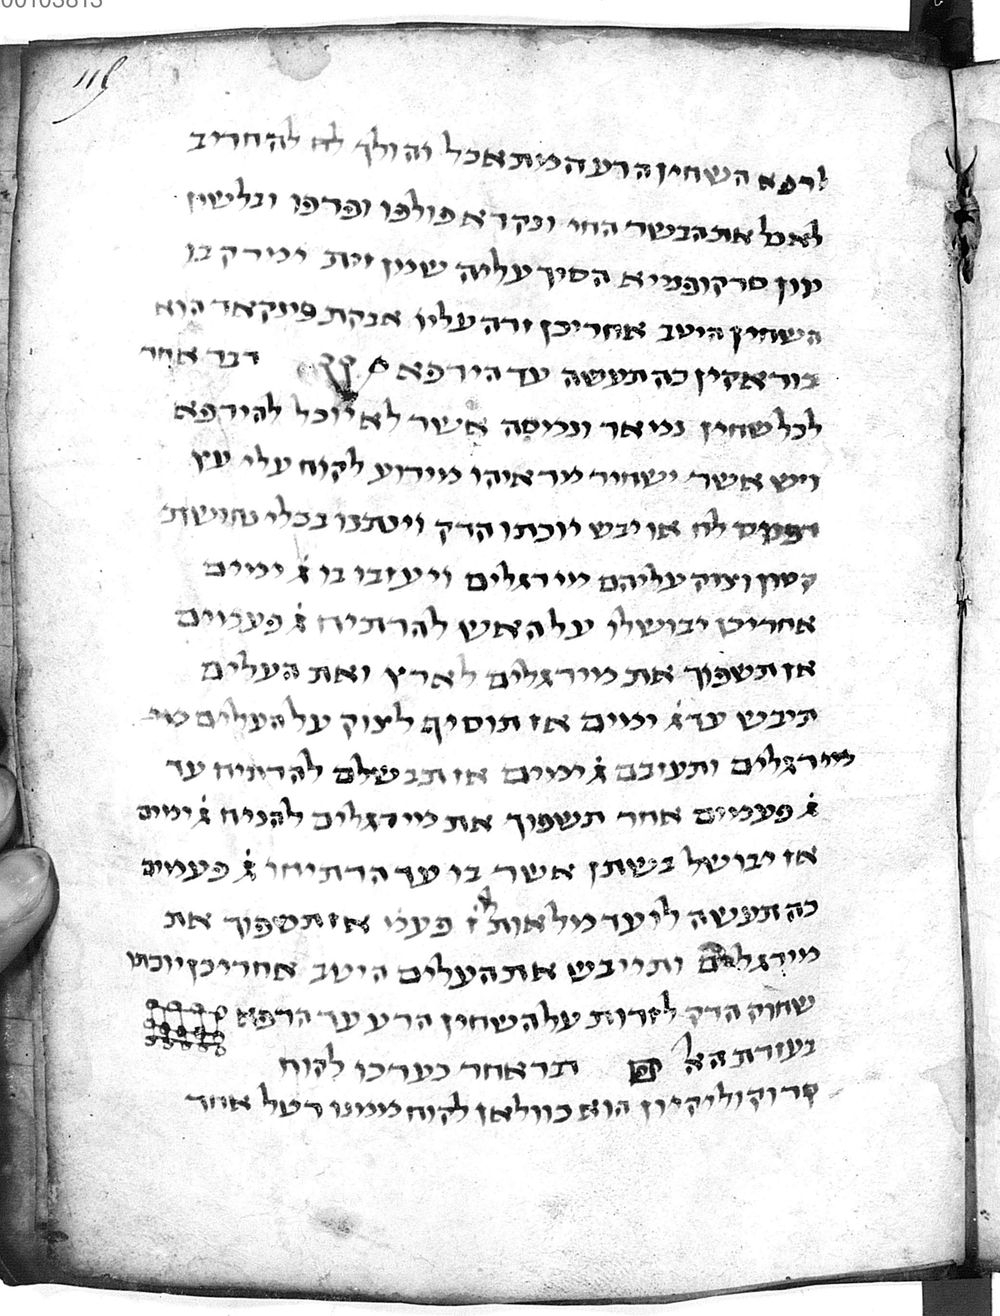 00103813
118
לרפא השחין הרע המתאכל והולך לח להחריב
לאכל את הבשר החי ונקרא פולפו ופרפו ובלשון
יוון סרקופמיא הסיך עליה שמן זית וימרק בו
השחין היטב אחריכן זרה עליו אבקת פינקאר הוא
בוראקין כה תעשה עד הירפא דבר אחר
לכל שחין נמאר ונמסה אשר לא יוכל להירפא
ויש אשר ישחיר מראיהו מידוע לקוח עלי עץ
לח או יבש ויכתו הדק ויתנו בכלי נחושת
קטון וצוק עליהם מירגלים ויעזבו בו ג ימים
אחריכן יבושלו על האש להרתיח ג פעמים
אז תשפוך את מירגלים לארץ ואת העלים
תיבש עד ג ימים אז תוסיף לצוק על העלים
מירגלים ותעזבם ג ימים אז תבשלם להרתיח עד
ג פעמים אחר תשפוך את מירגלים להניח ג ימים
אז יבושל בשתן אשר בו עד הרתיחו ג פעמים
כה תעשה לו עד מלאות ל ז פעמי אז תשפוך את
מירגלים ותייבש את העלים היטב אחריכן יוכתו
שחוק הדק לזרות על השחין הרע עד הרפא
בעזרת הא דבר אחר כערכו לקוח
סרוקוליקיון הוא כוולאן לקוח ממנו רטל אחד